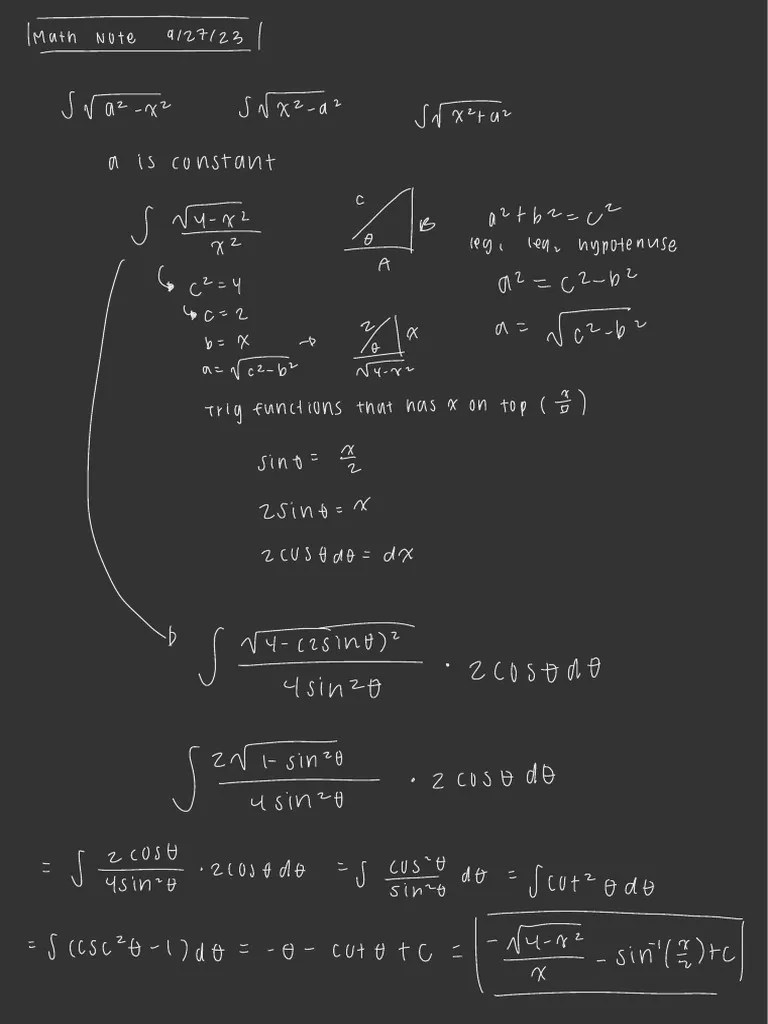 Math Note 9/27/23
∫√(a²-x²) ∫√(x²-a²) ∫√(x²+a²)
a is constant
∫ √(4-x²)/x²
C
B
θ
A
a²+b²=c²
leg₁ leg₂ hypotenuse
a² = c²-b²
a = √(c²-b²)
c²=4
c=2
b=x
a=√(c²-b²) →
2
x
θ
√(4-x²)
Trig functions that has x on top (x/□)
sinθ = x/2
2sinθ = x
2cosθdθ = dx
∫ √(4-(2sinθ)²)/4sin²θ · 2cosθdθ
∫ 2√(1-sin²θ)/4sin²θ · 2cosθ dθ
= ∫ 2cosθ/4sin²θ · 2cosθdθ = ∫ cos²θ/sin²θ dθ = ∫cot²θdθ
= ∫(csc²θ-1)dθ = -θ - cotθ + C = -√(4-x²)/x - sin⁻¹(x/2)+C